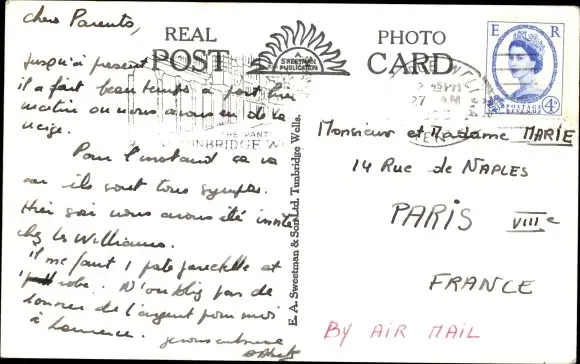 chers Parents,
Jusqu'à présent
il a fait beau temps à part hier
matin ou nous avons eu de la
neige.
Pour l'instant ça va
car ils sont tous sympas.
Hier soir nous avons été invités
chez les Williams.
Il me faut 1 et
robe. N'oubliez pas de
donner de l'argent pour moi
à Laurence. je vous embrasse
REAL PHOTO
POST CARD
A. SWEETMAN PUBLICATION
E. A. Sweetman & Son Ltd. Tunbridge Wells.
THE PANT
TUNBRIDGE W
2 45 PM
27
E R
POSTAGE REVENUE
4D
Monsieur et Madame MARIE
14 Rue de NAPLES
PARIS VIIIe
FRANCE
BY AIR MAIL